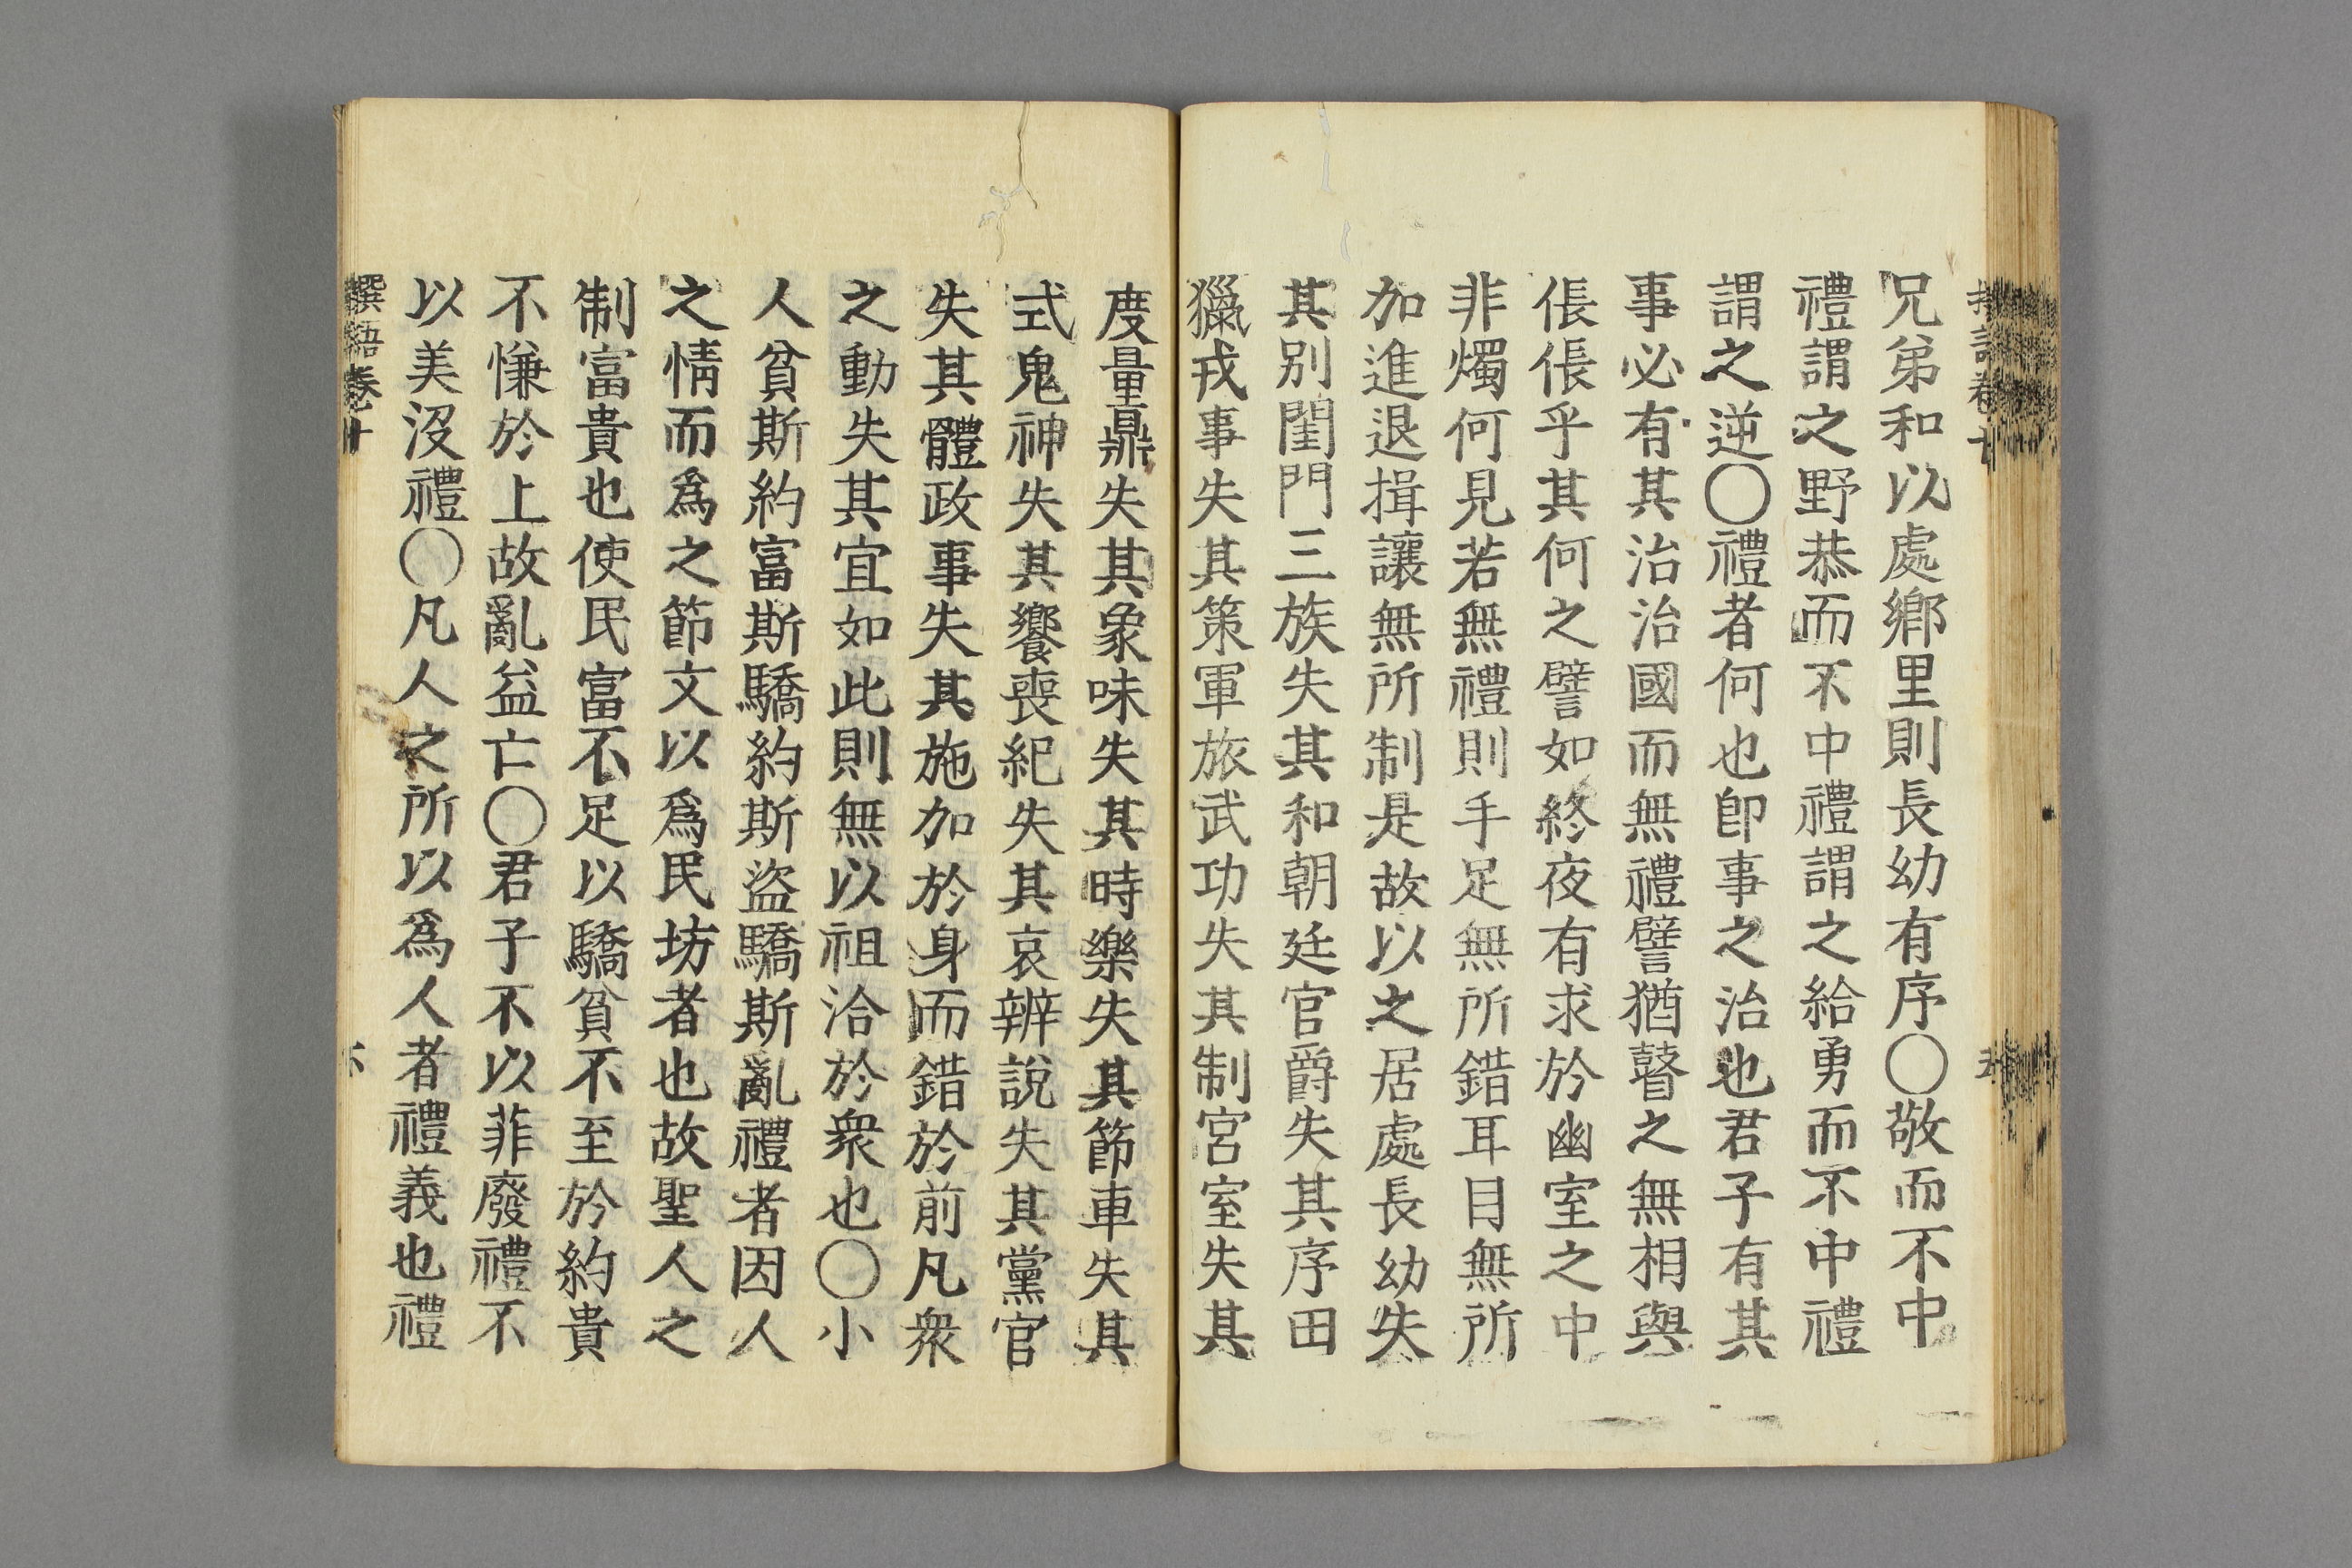 兄弟和以處鄉里則長幼有序〇敬而不中
禮謂之野恭而不中禮謂之給勇而不中禮
謂之逆〇禮者何也卽事之治也君子有其
事必有其治治國而無禮譬猶瞽之無相與
倀倀乎其何之譬如終夜有求於幽室之中
非燭何見若無禮則手足無所錯耳目無所
加進退揖讓無所制是故以之居處長幼失
其别閨門三族失其和朝廷官爵失其序田
獵戎事失其策軍旅武功失其制宮室失其
度量鼎失其象味失其時樂失其節車失其
式鬼神失其饗喪紀失其哀辨說失其黨官
失其體政事失其施加於身而錯於前凡衆
之動失其宜如此則無以祖洽於衆也〇小
人貧斯約富斯驕約斯盜驕斯亂禮者因人
之情而爲之節文以爲民坊者也故聖人之
制富貴也使民富不足以驕貧不至於約貴
不慊於上故亂益亡〇君子不以菲廢禮不
以美沒禮〇凡人之所以爲人者禮義也禮
撰語卷十
六